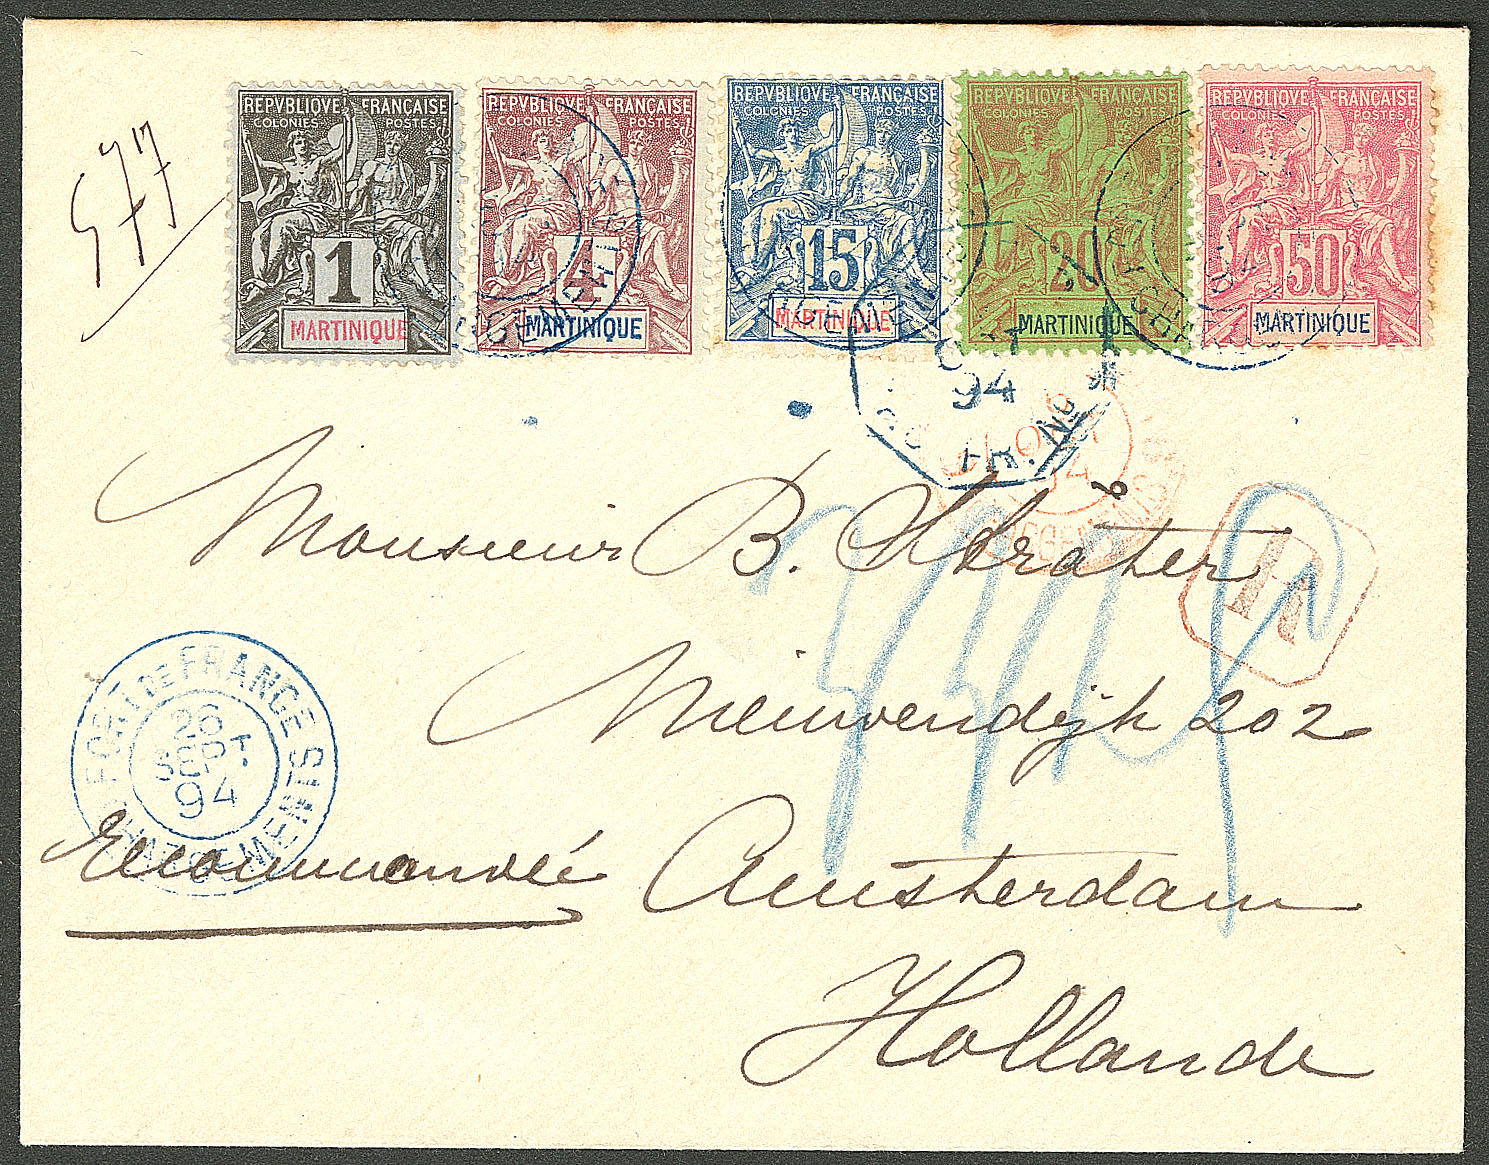 REPVBLIQVE FRANÇAISE
COLONIES POSTES
1
MARTINIQUE
REPVBLIQVE FRANÇAISE
COLONIES POSTES
4
MARTINIQUE
REPVBLIQVE FRANÇAISE
COLONIES POSTES
15
MARTINIQUE
REPVBLIQVE FRANÇAISE
COLONIES POSTES
20
MARTINIQUE
REPVBLIQVE FRANÇAISE
COLONIES POSTES
50
MARTINIQUE
577
94
Monsieur B. Strater
R
Nieuwendijk 202
FORT DE FRANCE
26
SEPT
94
CHARGEMENTS
Recommandée
Amsterdam
Hollande